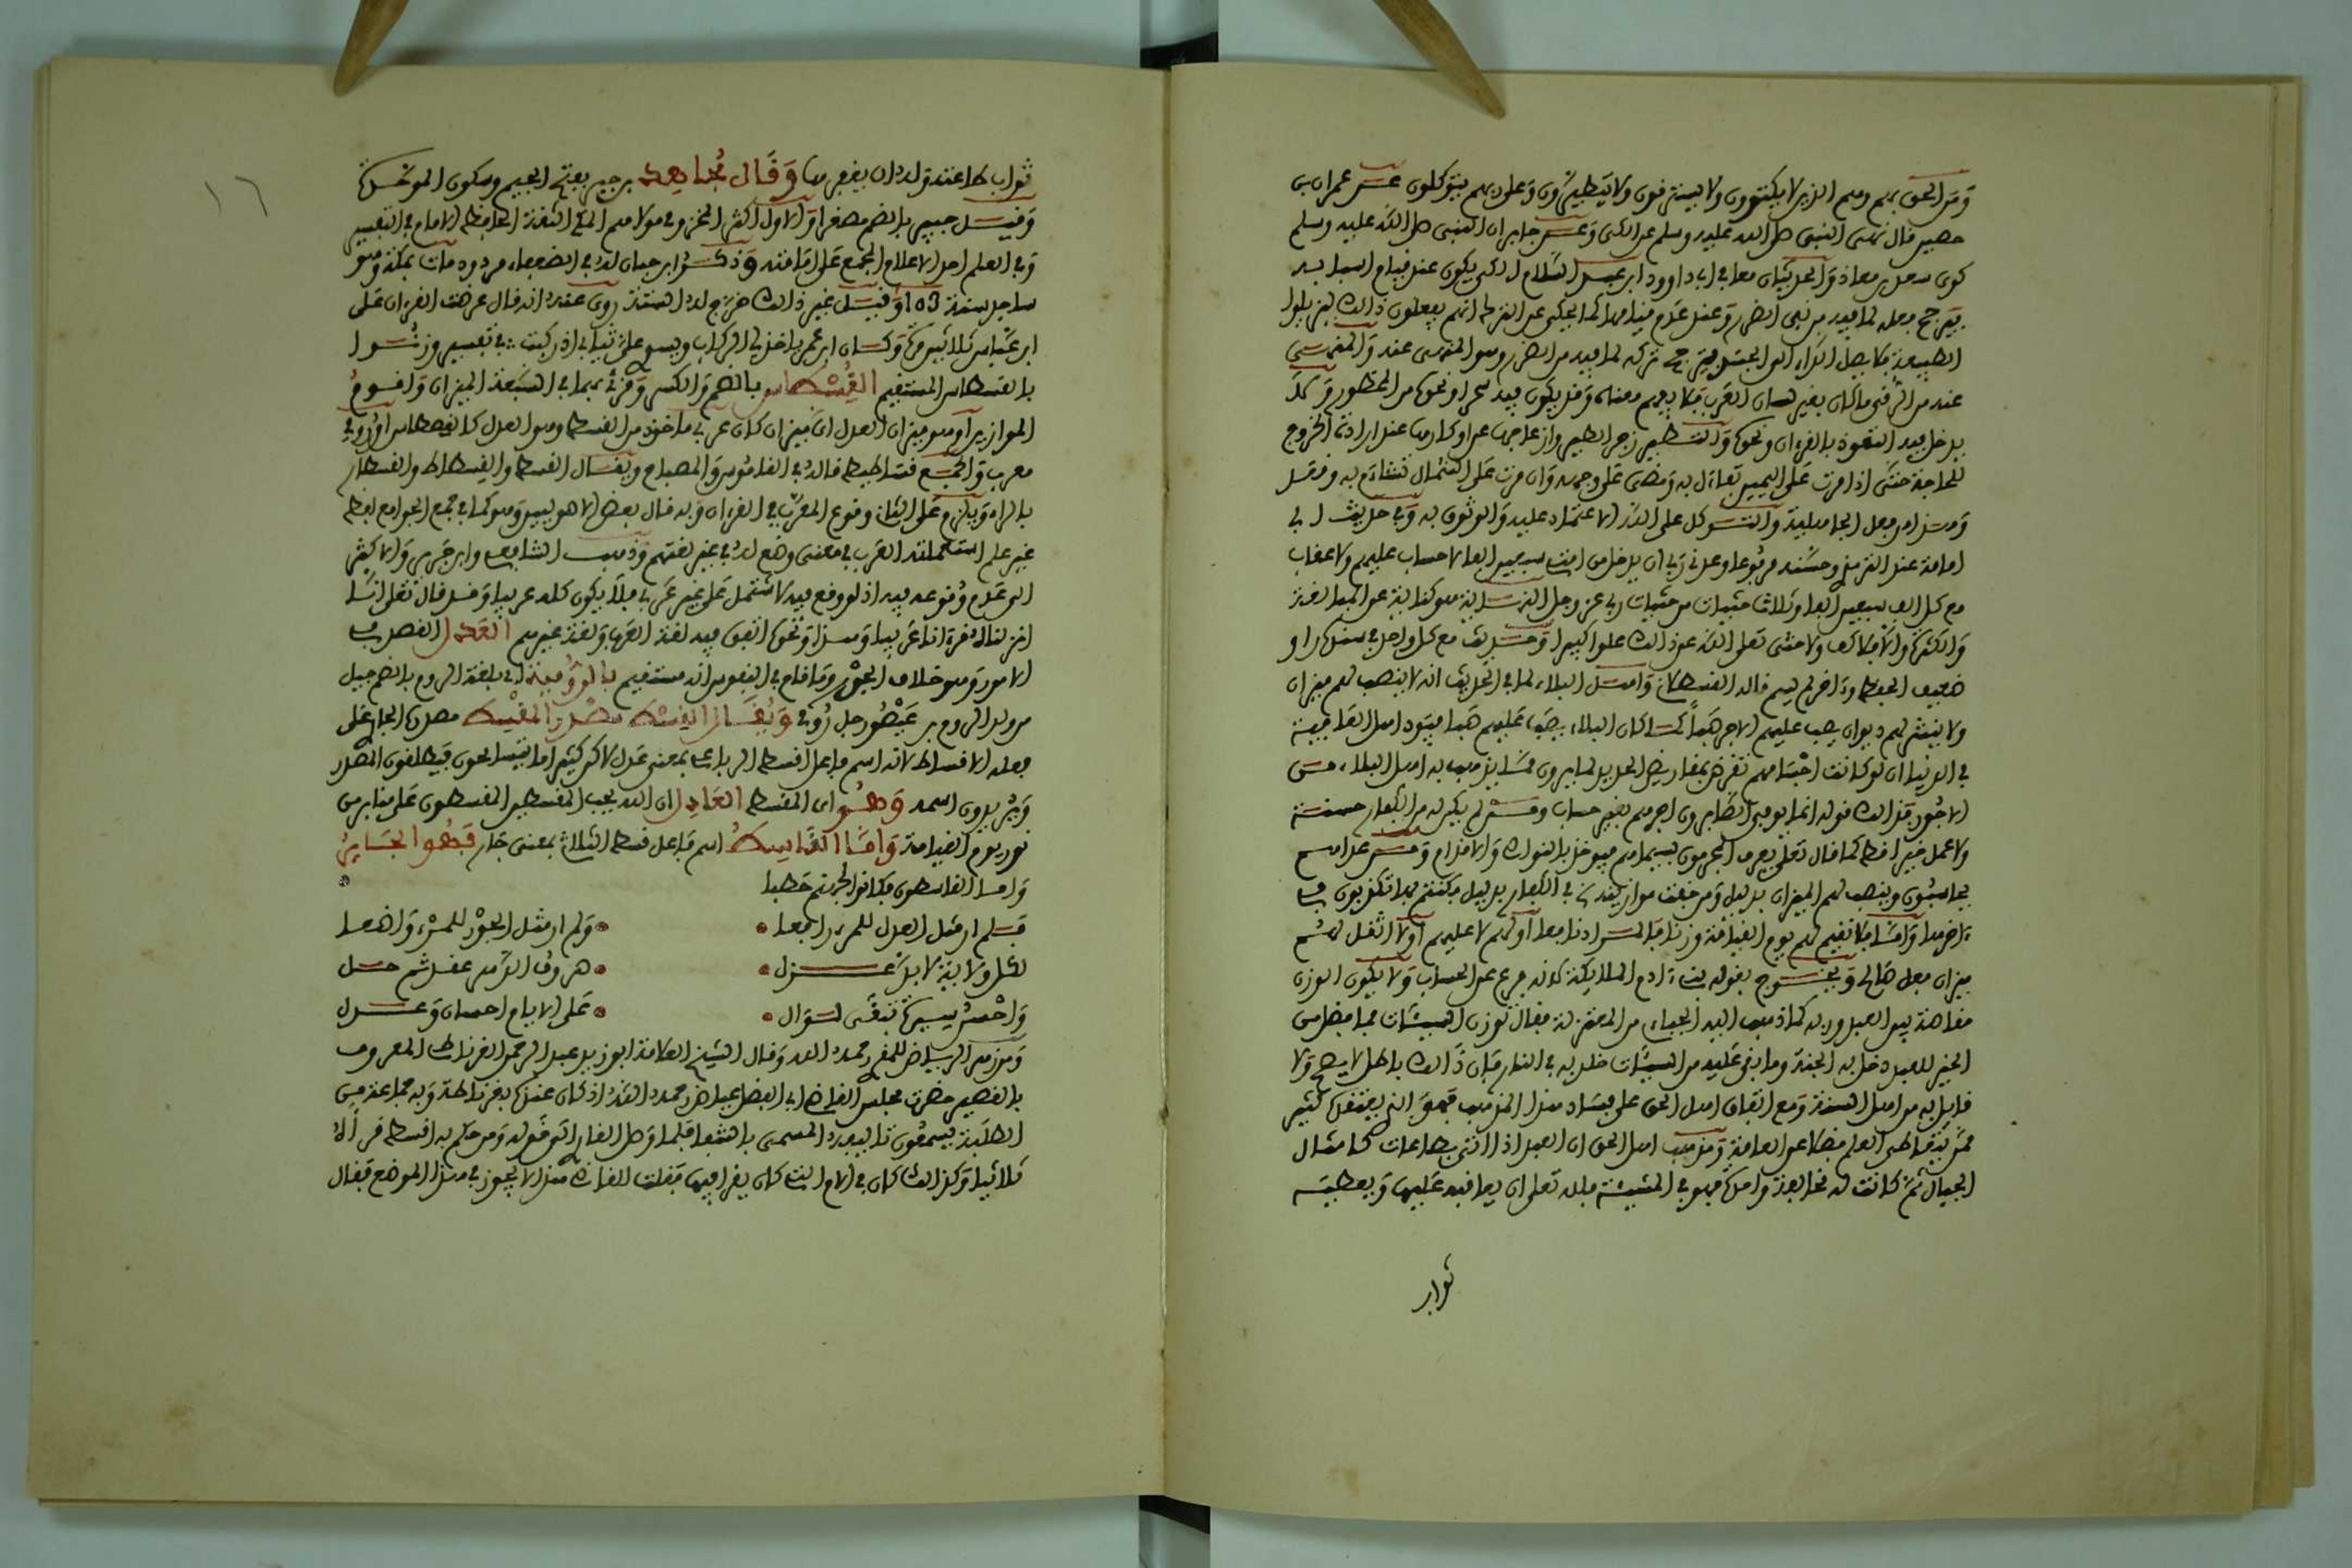 ومن الحق بهم وهم الذين لا يكتوون ولا يسترقون ولا يتطيرون وعلى ربهم يتوكلون عن عمران بن
حصين قال نهى النبي صلى الله عليه وسلم عن الكي وعن جابر ان النبي صلى الله عليه وسلم
كوى سعد بن معاذ والحديثان معا في ابي داوود ابن عبد السلام الكي يكون عند قيام اسبابه
يترجح فعله لما فيه من نفي الضرر وعند عدم قيامها كما يحكى عن الترك انهم يفعلون ذالك ليزيلوا
الطبيعة فلا يصل الداء الى الجسد يترجح تركه لما فيه من الضرر وهو المنهي عنه والمنهي
عنه من الرقى ما كان بغير لسان العرب فلا يفهم معناه وقد يكون فيه سحر او نحوه من المحظور ولا
يدخل فيه التعوذ بالقرءان ونحوه والتطير زجر الطير وازعاجها عن اوكارها عند ارادة الخروج
للحاجة حتى اذا مرت على اليمين تفاءل به ومضى على وجهه وان مرت على الشمال تشاءم به وقعد
وهذا من فعل الجاهلية والتوكل على الله الاعتماد عليه والوثوق به وفي حديث ابي
امامة عند الترمذي وحسنه مرفوعا وعدني ربي ان يدخل من امتي سبعين الفا لا حساب عليهم ولا عقاب
مع كل الف سبعين الفا وثلاث حثيات من حثيات ربي عز وجل
والكثرة والا فلا كف ولا حثى تعلى الله عن ذالك علوا كبيرا وحديث مع كل واحد
ضعيف الحفظ قاله القسطلاني واهل البلاء لما في الحديث انه لا ينصب لهم ميزان
ولا ينشر لهم ديوان يصب عليهم الاجر صبا كما كان البلاء يصب عليهم صبا فيود اهل العافية
في الدنيا ان لو كانت اجسامهم تقرض بمقاريض الحديد لما يرون مما يذهب به اهل البلاء من
الاجور فذالك قوله انما يوفى الصابرون اجرهم بغير حساب ومن لم يكن له من الكفار حسنة
ولا عمل خير افظ كما قال تعلى يعرف المجرمون بسيماهم فيوخذ بالنواصي والاقدام ومن عداهم
يحاسبون وينصب لهم الميزان بدليل ومن خفت موازينه في الكفار بدليل فكنتم بها تكذبون في
ءاخرها واما فلا نقيم لهم يوم القيامة وزنا فالمراد نافعا او لهم لا عليهم او لا اثقل لهم
ميزان فعل صالح ويخرج بقوله بني ءادم الملايكة لانه فرع عن الحساب ولا يكون الوزن
مقاصة بين العبد وربه كما ذهب اليه الجبائي من المعتزلة فقال توزن السيئات فما فضل من
الخير للعبد دخل به الجنة وما بقي عليه من السيئات خلد به في النار فان ذالك باطل لا يصح ولا
قايل به من اهل السنة ومع اتفاق اهل الحق على فساد هذا المذهب فهو الذي يعتقده كثير
ممن يتعاطى العلم فضلا عن العامة ومذهب اهل الحق ان العبد اذا اتى بطاعات كامثال
الجبال ثم كانت له مخالفة واحدة فهو في المشيئة فلله تعلى ان يعاقبه عليها ويعطيه
ثواب
ثواب طاعته وله ان يغفرها وقال مجاهد بن جبر بفتح الجيم وسكون الموحدة
وقيل جبير بالضم مصغرا والاول اكثر المخزومي مولاهم المكي الثقة الحافظ الامام في التفسير
وفي العلم احد الاعلام المجمع على امامته وذكر ابن حبان له في الضعفاء مردود مات بمكة وهو
ساجد سنة 103 وقيل غير ذالك خرج له الستة روي عنه انه قال عرضت القرءان على
ابن عباس ثلاثين مرة وكان ابن عمر ياخذ لي الركاب ويسوي علي ثيابي اذا ركبت في تفسير وزنوا
بالقسطاس المستقيم القسطاس بالضم والكسر وقرئ بهما في السبعة الميزان واقوم
الموازين او هو ميزان العدل اي ميزان كان عربي ماخوذ من القسط وهو العدل كالقسطاس او رومي
معرب والجمع قساطيط قاله في القاموس والمصباح ويقال القسط والقسطاط والقسطار
بالراء ويلزم على الثاني وقوع المعرب في القرءان وبه قال بعض الاصوليين وهو كما في جمع الجوامع لفظ
غير علم استعملته العرب في معنى وضع له في غير لغتهم وذهب الشافعي وابن جرير والاكثر
الى عدم وقوعه فيه اذ لو وقع فيه لاشتمل على غير عربي فلا يكون كله عربيا وقد قال تعلى انا
انزلناه قرءانا عربيا وهذا ونحوه اتفق فيه لغة العرب ولغة غيرهم العدل القصد في
الامور وهو خلاف الجور وما قام في النفوس انه مستقيم بالرومية اي بلغة الروم بالضم جيل
من ولد الروم بن عيصو رجل رومي ويقال القسط مصدر المقسط مصدره الجاري على
فعله الاقساط لانه اسم فاعل اقسط الرباعي بمعنى عدل لاكن كثيرا ما يتسامحون فيطلقون المصدر
ويريدون اسمه وهو اي المقسط العادل ان الله يحب المقسطين المقسطون على منابر من
نور يوم القيامة واما القاسط اسم فاعل قسط الثلاثي بمعنى جار فهو الجاير
واما القاسطون فكانوا لجهنم حطبا
فلم ار مثل العدل للمرء رافعا • ولم ار مثل الجور للمرء واضعا
لكل ولاية لا بد عزل • وصرف الدهر عقد ثم حل
واحسن سيرة تبقى لوال • على الايام احسان وعدل
ومن زهر الرياض للمقري رحمه الله وقال الشيخ العلامة ابو زيد عبد الرحمن الغرناطي المعروف
بالقصير حضرت مجلس القاضي ابي الفضل عياض رحمه الله اذ كان عندنا بغرناطة وبه جماعة من
الطلبة يسمعون تاليفه المسمى بالشفا فلما وصل القارئ الى قوله ومن حكم به اقسط قرأ
ثلاثيا وكذالك كان في الام التي كان يقرا فيها فقلت للقاضي هذا لا يجوز في هذا الموضع فقال